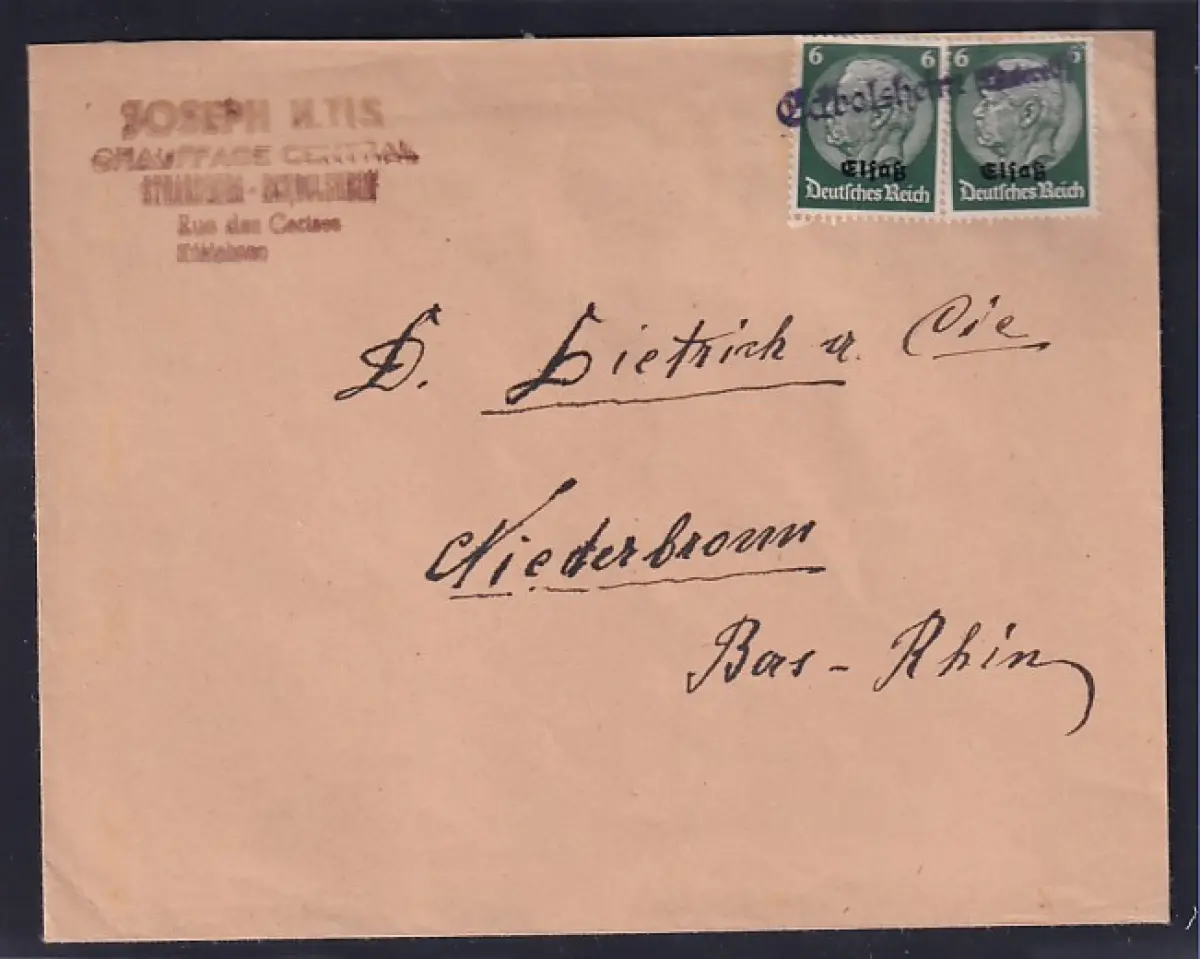 JOSEPH
CHAUFFAGE CENTRAL
STRASBOURG -
Rue des Cerises
6 6 6 6
Eckbolsheim
Elsaß Elsaß
Deutsches Reich Deutsches Reich
D. Dietrich u. Cie
Niederbronn
Bas-Rhin